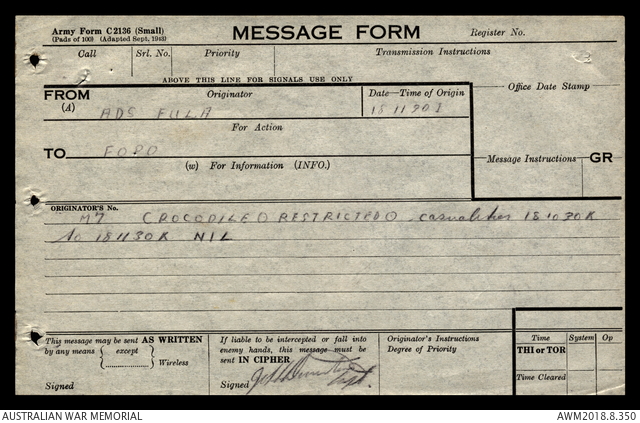 Army Form C2136 (Small)
(Pads of 100) (Adapted Sept, 1943)
MESSAGE FORM
Register No.
Call
Srl. No.
Priority
Transmission Instructions
ABOVE THIS LINE FOR SIGNALS USE ONLY
FROM
(A)
Originator
ADS FULA
Date—Time of Origin
Office Date Stamp
For Action
TO
FOPO
(w) For Information (INFO.)
Message Instructions
GR
ORIGINATOR'S No.
M7 CROCODILE () RESTRICTED () casualties 181030K
to 181130K NIL
This message may be sent AS WRITTEN
by any means { except
Wireless
Signed
If liable to be intercepted or fall into
enemy hands, this message must be
sent IN CIPHER
Signed
Capt.
Originator's Instructions
Degree of Priority
Time
System
Op
THI or TOR
Time Cleared
AUSTRALIAN WAR MEMORIAL
AWM2018.8.350